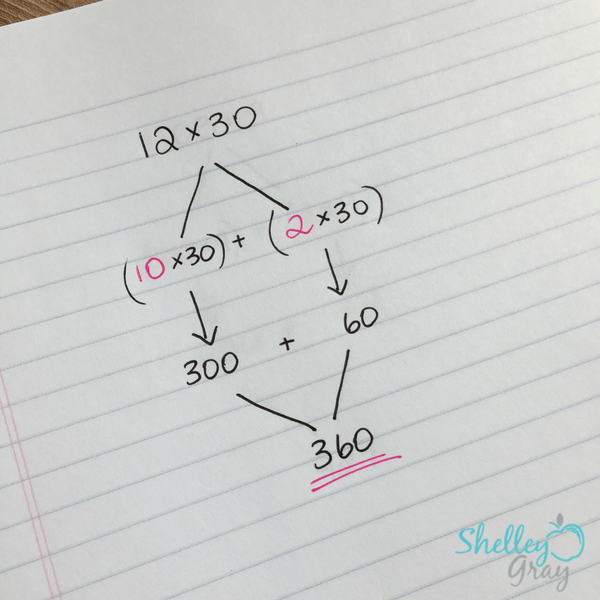 12 × 30
(10 × 30) + (2 × 30)
300 + 60
360
Shelley
Gray